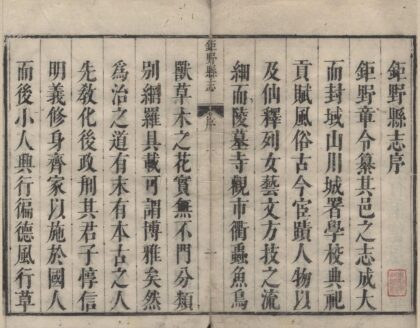 鉅野縣志序
鉅野章令纂其邑之志成大
而封域山川城署學校典祀
貢賦風俗古今宦蹟人物以
及仙釋列女藝文方技之流
細而陵墓寺觀市衢蟲魚鳥
鉅野縣志
序
獸草木之花實無不門分類
別網羅具載可謂博雅矣然
為治之道有末有本古之人
先教化後政刑其君子惇信
明義修身齊家以施於國人
而後小人興行徧德風行草